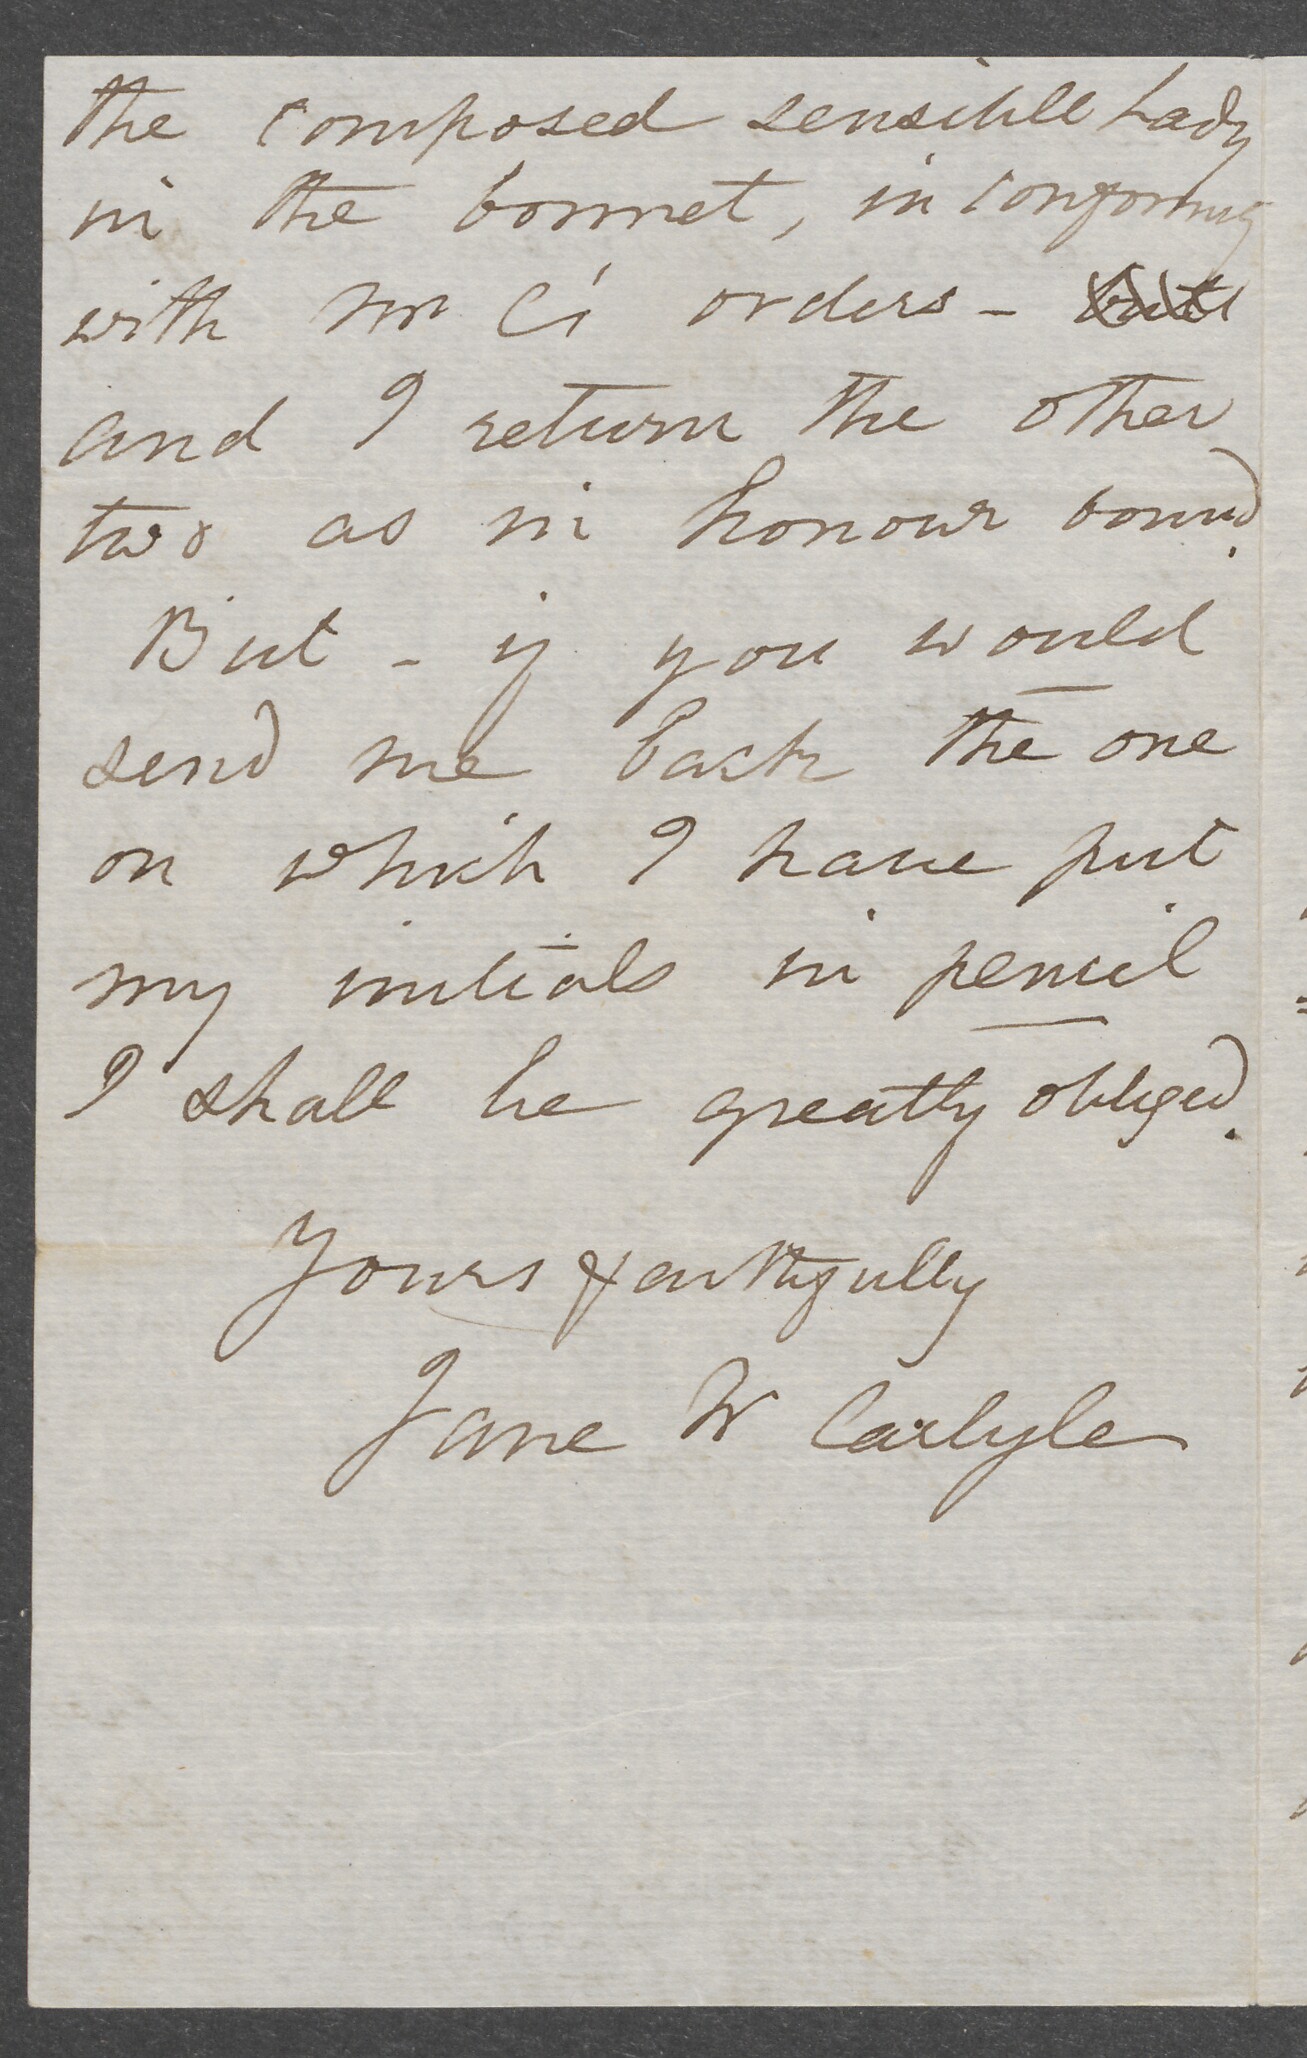 the composed sensible Lady
in the bonnet, in conformity
with Mr C's orders - but
and I return the other
two as in honour bound.
But - if you would
send me back the one
on which I have put
my initials in pencil
I shall be greatly obliged.
Yours faithfully
Jane W Carlyle